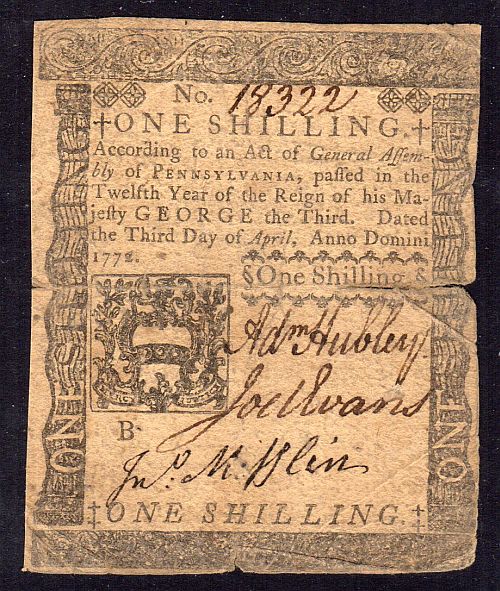 No. 18322
‡ONE SHILLING.‡
According to an Act of General Aſſem-
bly of PENNSYLVANIA, paſſed in the
Twelfth Year of the Reign of his Ma-
jeſty GEORGE the Third. Dated
the Third Day of April, Anno Domini
1772.
§One Shilling.§
Adm Hubley
Joel Evans
B
Jno. Mifflin
‡ONE SHILLING.‡
ONE SHILLING
ONE SHILLING